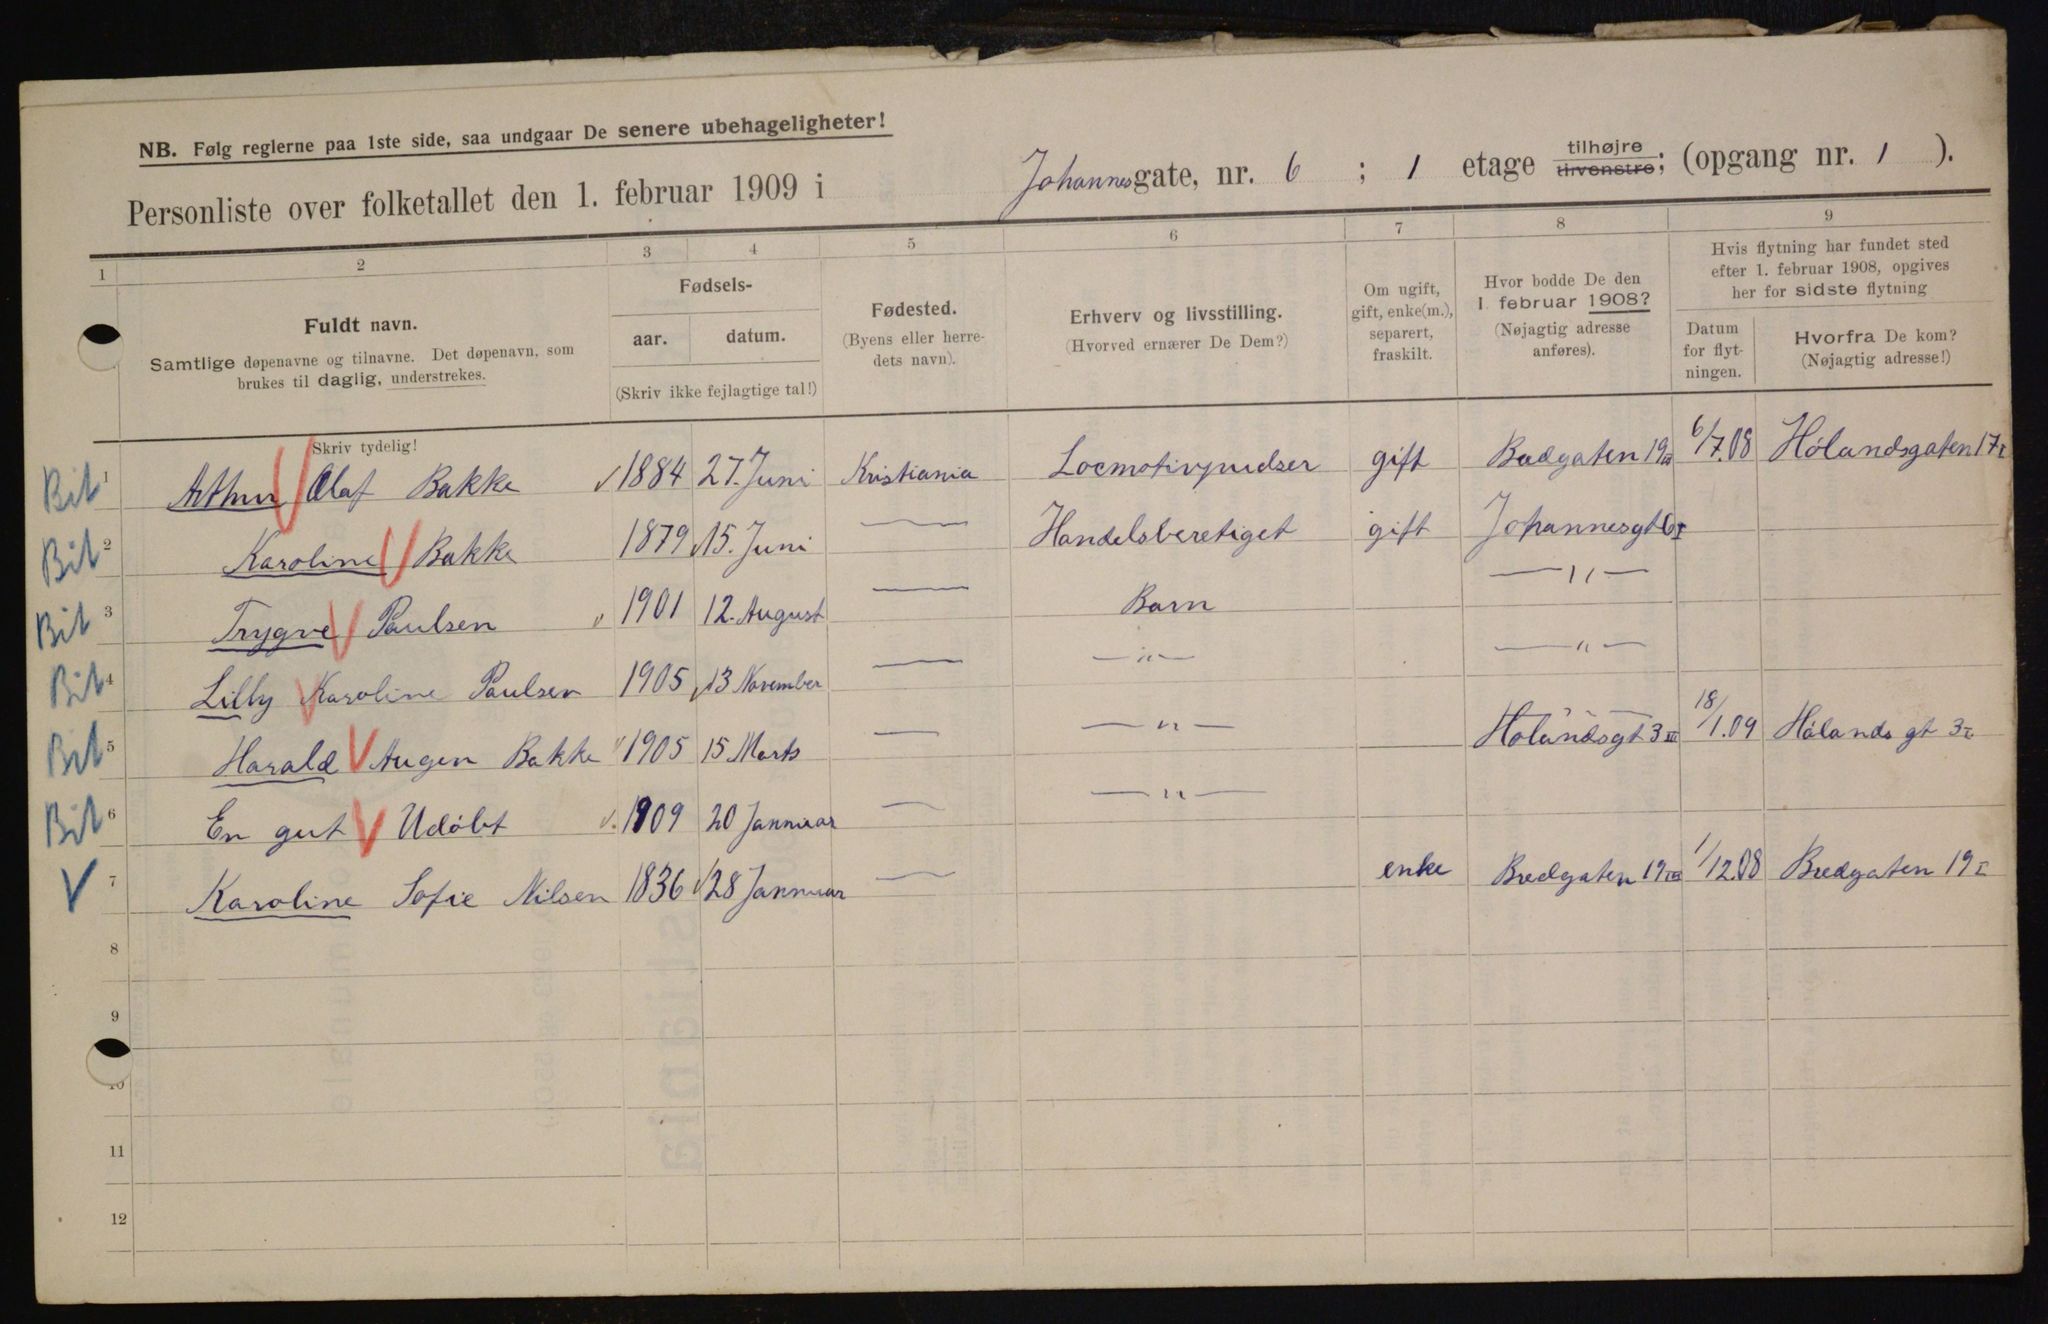 NB. Følg reglerne paa 1ste side, saa undgaar De senere ubehageligheter!
Personliste over folketallet den 1. februar 1909 i Johannesgate, nr. 6 ; 1 etage tilhøjre tilvenstre; (opgang nr. 1 ).
1 2 3 4 5 6 7 8 9
Fuldt navn.
Samtlige døpenavne og tilnavne. Det døpenavn, som
brukes til daglig, understrekes.
Skriv tydelig!
Fødsels-
aar. datum.
(Skriv ikke fejlagtige tal!)
Fødested.
(Byens eller herre-
dets navn).
Erhverv og livsstilling.
(Hvorved ernærer De Dem?)
Om ugift,
gift, enke(m.),
separert,
fraskilt.
Hvor bodde De den
1. februar 1908?
(Nøjagtig adresse
anføres).
Hvis flytning har fundet sted
efter 1. februar 1908, opgives
her for sidste flytning
Datum
for flyt-
ningen.
Hvorfra De kom?
(Nøjagtig adresse!)
Bit 1 Arthur Olaf Bakke 1884 27. Juni Kristiania Locmotivpudser gift Bredgaten 19 III 6/7.08 Hølandsgaten 17 I
Bit 2 Karoline Bakke 1879 15. Juni — Handelsberetiget gift Johannesgt 6 I
Bit 3 Trygve Paulsen 1901 12. August — Barn —"—
Bit 4 Lilly Karoline Paulsen 1905 13 November — —"— —"—
Bit 5 Harald Augen Bakke 1905 15 Marts — —"— Hølandsgt 3 III 18/1.09 Hølands gt 3 I
Bit 6 En gut Udøbt 1909 20 Januar — —"—
7 Karoline Sofie Nilsen 1836 28 Januar — enke Bredgaten 19 III 1/12.08 Bredgaten 19 I
8
9
10
11
12